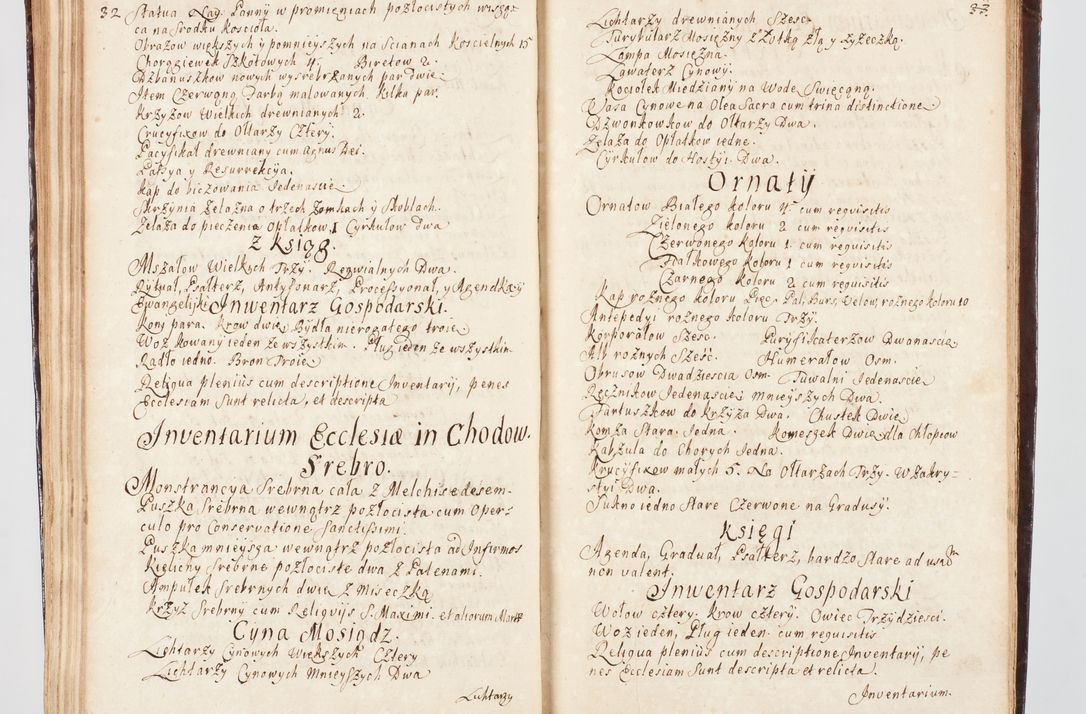 32 Statua Nay. Panny w promieniach pozłocistych wiszą-
ca na srodku kościoła.
Obrazow większych y pomnieyszych na scianach Koscielnych 15
Chorągiewek Szkotowych 4. Biretow 2.
Dzbanuszkow nowych wysrebrzanych par dwie.
Item Czerwoną Farbą malowanych kilka par.
Krzyzow Wielkich drewnianych 2.
Crucyfixow do Ołtarzy Cztery.
Pacyfikał drewniany cum Agnus Dei.
Passya y Resurrekcya.
Kap do biczowania Iedenascie.
Skrzynia Zelazna o trzech Zamkach y Skoblach.
Zelaza do pieczenia Opłatkow 1 Cyrkułow Dwa
Z Ksiąg.
Mszałow Wielkich Trzy. Requialnych Dwa.
Rytuał, Psałterz, Antyfonarz, Processyonał, y Agendka y
Ewangeliyki Inwentarz Gospodarski.
Koni para. Krow dwie Bydła nierogatego troie
Woz kowany ieden ze wszystkim. Pług ieden ze wszystkim
Radło iedno. Bron Troie
Reliqua plenius cum descriptione Inventarij, penes
Ecclesiam sunt relicta, et descripta
Inventarium Ecclesiæ in Chodow.
Srebro.
Monstrancya Srebrna cała z Melchisedesem.
Puszka Srebrna wewnątrz pozłocista cum Oper-
culo pro Conservatione Sanctissimi.
Puszka mnieysza wewnątrz pozłocista ad Infirmos
Kielichy Srebrne pozłociste dwa z Patenami.
Ampułek Srebrnych dwie z Miseczką
Krzyz Srebrny cum Reliquijs S. Maximi et aliorum Mart
Cyna Mosiądz.
Lichtarzy Cynowych Większych Cztery
Lichtarzy Cynowych Mnieyszych Dwa
Lichtarzy
33.
Lichtarzy drewnianych Szesc.
Turybularz Mosiężny z Łotką złą y Łyzeczką.
Lampa Mosiężna.
Lawaterz Cynowy.
Kociołek Miedziany na Wodę Swięconą.
Vasa Cynowe na Olea Sacra cum trina distinctione.
Dzwonkowkow do Ołtarzy Dwa.
Zelaza do Opłatkow iedne.
Cyrkułow do Hostyi Dwa.
Ornaty
Ornatow Białego koloru 4. cum requisitis
Zielonego koloru 2 cum requisitis
Czerwonego koloru 1. cum requisitis
Fiałkowego koloru 1 cum requisitis
Czarnego koloru 2. cum requisitis
Kap roznego koloru Pięc. Pal, Burs, Welow, roznego koloru 10
Antepedyi roznego koloru Trzy.
Korporałow Szesc. Puryfikaterzow Dwanascie
Alb roznych Szesc. Humerałow Osm.
Obrusow Dwadziescia Osm. Tuwalni Iedenascie
Ręcznikow Iedenascie mnieyszych Dwa.
Fartuszkow do krzyza Dwa. Chustek Dwie
Komza Stara Iedna. Komeszek Dwie dla Chłopcow
Kapsula do Chorych Iedna.
Krucyfixow małych 5. Na Ołtarzach Trzy. W zakry-
styi Dwa.
Sukno iedno Stare Czerwone na Gradusy.
Księgi
Agenda, Graduał, Psałterz, bardzo Stare ad usum
non valent.
Inwentarz Gospodarski
Wołow cztery. krow cztery. Owiec Trzydziesci.
Woz ieden, Pług ieden. cum requisitis
Reliqua plenius cum descriptione Inventarij, pe
nes Ecclesiam sunt descripta et relicta.
Inventarium.